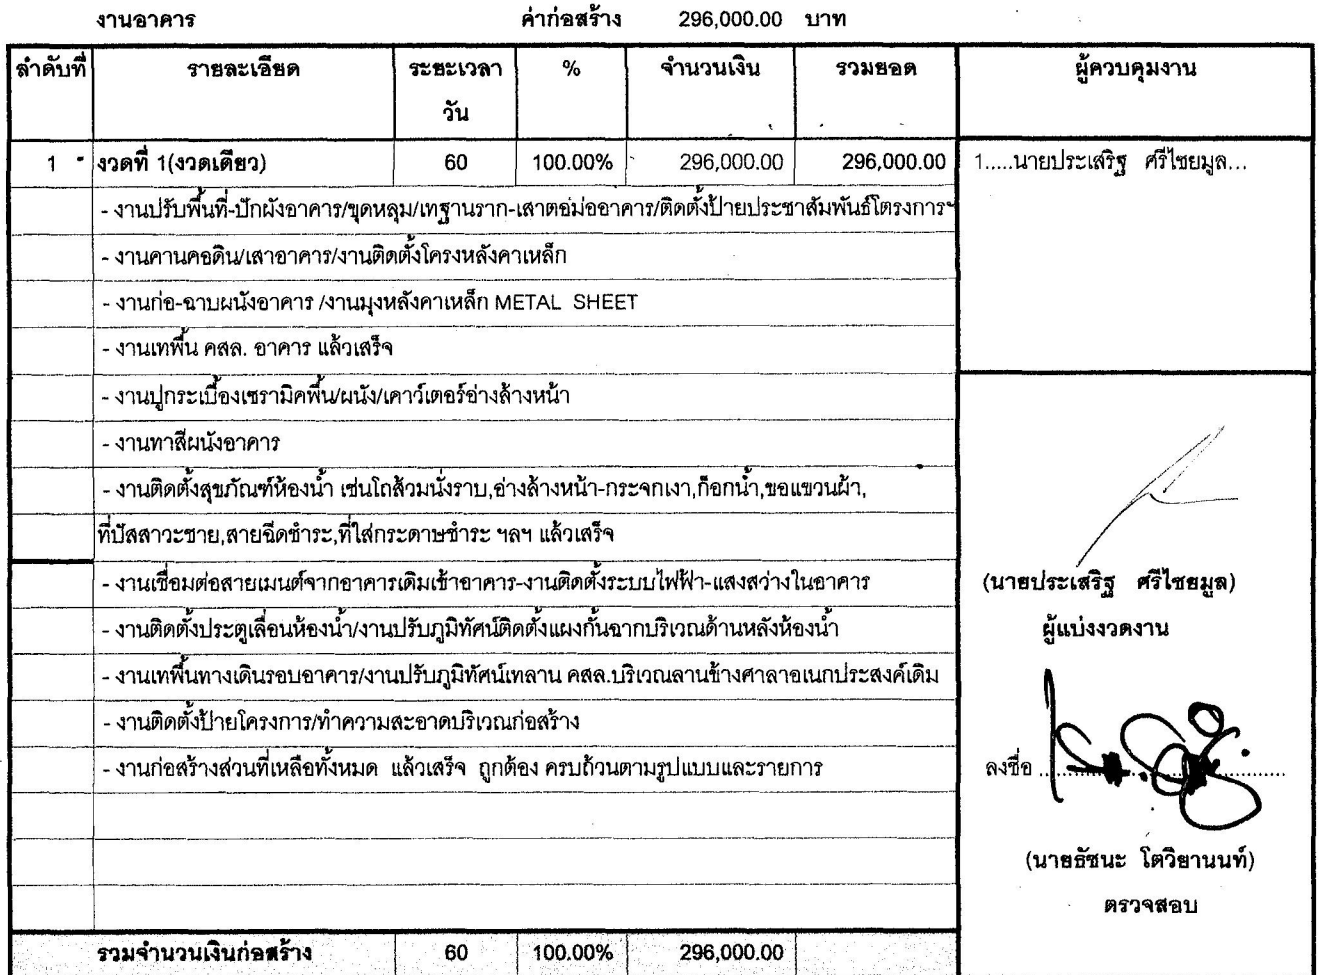 งานอาคาร ค่าก่อสร้าง 296,000.00 บาท
ลำดับที่ รายละเอียด ระยะเวลา % จำนวนเงิน รวมยอด ผู้ควบคุมงาน
วัน
1 งวดที่ 1(งวดเดียว) 60 100.00% 296,000.00 296,000.00 1.....นายประเสริฐ ศรีไชยมูล...
- งานปรับพื้นที่-ปักผังอาคาร/ขุดหลุม/เทฐานราก-เสาตอม่ออาคาร/ติดตั้งป้ายประชาสัมพันธ์โครงการฯ
- งานคานคอดิน/เสาอาคาร/งานติดตั้งโครงหลังคาเหล็ก
- งานก่อ-ฉาบผนังอาคาร /งานมุงหลังคาเหล็ก METAL SHEET
- งานเทพื้น คสล. อาคาร แล้วเสร็จ
- งานปูกระเบื้องเซรามิคพื้น/ผนัง/เคาว์เตอร์อ่างล้างหน้า
- งานทาสีผนังอาคาร
- งานติดตั้งสุขภัณฑ์ห้องน้ำ เช่นโถส้วมนั่งราบ,อ่างล้างหน้า-กระจกเงา,ก็อกน้ำ,ขอแขวนผ้า,
ที่ปัสสาวะชาย,สายฉีดชำระ,ที่ใส่กระดาษชำระ ฯลฯ แล้วเสร็จ
- งานเชื่อมต่อสายเมนต์จากอาคารเดิมเข้าอาคาร-งานติดตั้งระบบไฟฟ้า-แสงสว่างในอาคาร
(นายประเสริฐ ศรีไชยมูล)
- งานติดตั้งประตูเลื่อนห้องน้ำ/งานปรับภูมิทัศน์ติดตั้งแผงกั้นฉากบริเวณด้านหลังห้องน้ำ
ผู้แบ่งงวดงาน
- งานเทพื้นทางเดินรอบอาคาร/งานปรับภูมิทัศน์เทลาน คสล.บริเวณลานข้างศาลาอเนกประสงค์เดิม
- งานติดตั้งป้ายโครงการ/ทำความสะอาดบริเวณก่อสร้าง
- งานก่อสร้างส่วนที่เหลือทั้งหมด แล้วเสร็จ ถูกต้อง ครบถ้วนตามรูปแบบและรายการ
ลงชื่อ
(นายธัชนะ โตวิยานนท์)
ตรวจสอบ
รวมจำนวนเงินก่อสร้าง 60 100.00% 296,000.00